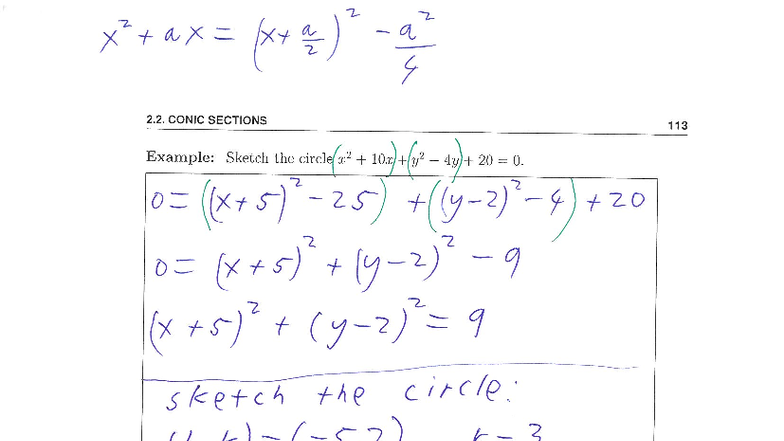 x² + ax = (x + a/2)² - a²/4
2.2. CONIC SECTIONS 113
Example: Sketch the circle (x² + 10x) + (y² − 4y) + 20 = 0.
0 = ((x+5)² - 25) + ((y-2)² - 4) + 20
0 = (x+5)² + (y-2)² - 9
(x+5)² + (y-2)² = 9
sketch the circle:
(h, k) = (-5, 2) r = 3